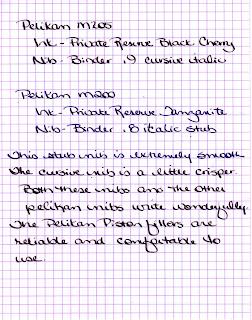 Pelikan M200
Ink - Private Reserve Black Cherry
Nib - Binder .9 cursive italic
Pelikan M200
Ink - Private Reserve Tanzanite
Nib - Binder .8 italic stub
This stub nib is extremely smooth
the cursive nib is a little crisper.
Both these nibs and the other
pelikan nibs write wonderfully.
The Pelikan Piston fillers are
reliable and comfortable to
use.